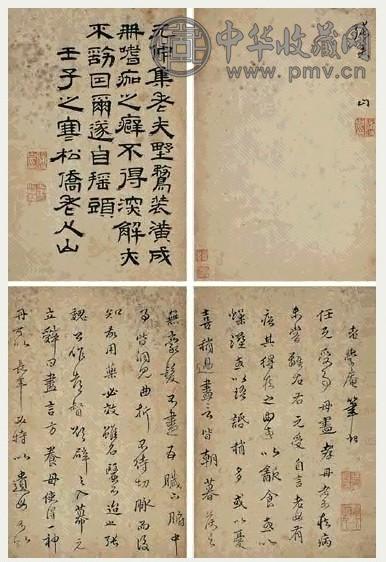 中华收藏网
www.pmv.cn
山
元仲集老夫野鶩裝潢成
冊嗜痂之癖不得深解大
不韵回爾遂自搖頭
壬子之寒松僑老人山
老學庵筆記
任元受事母盡孝母老多疾病
未嘗離左右元受自言老母有
疾其得疾之由或以飲食或以
燥濕或以語話稍多或以憂
喜稍過盡言皆朝暮
無豪髮不盡五臟六腑中
事皆洞見曲折不待切脈而後
知故用藥必效雖名醫不迨也張
魏公作都督欲辟之入幕元
立辭曰盡言方養母使得一神
丹可以長年必持以遺